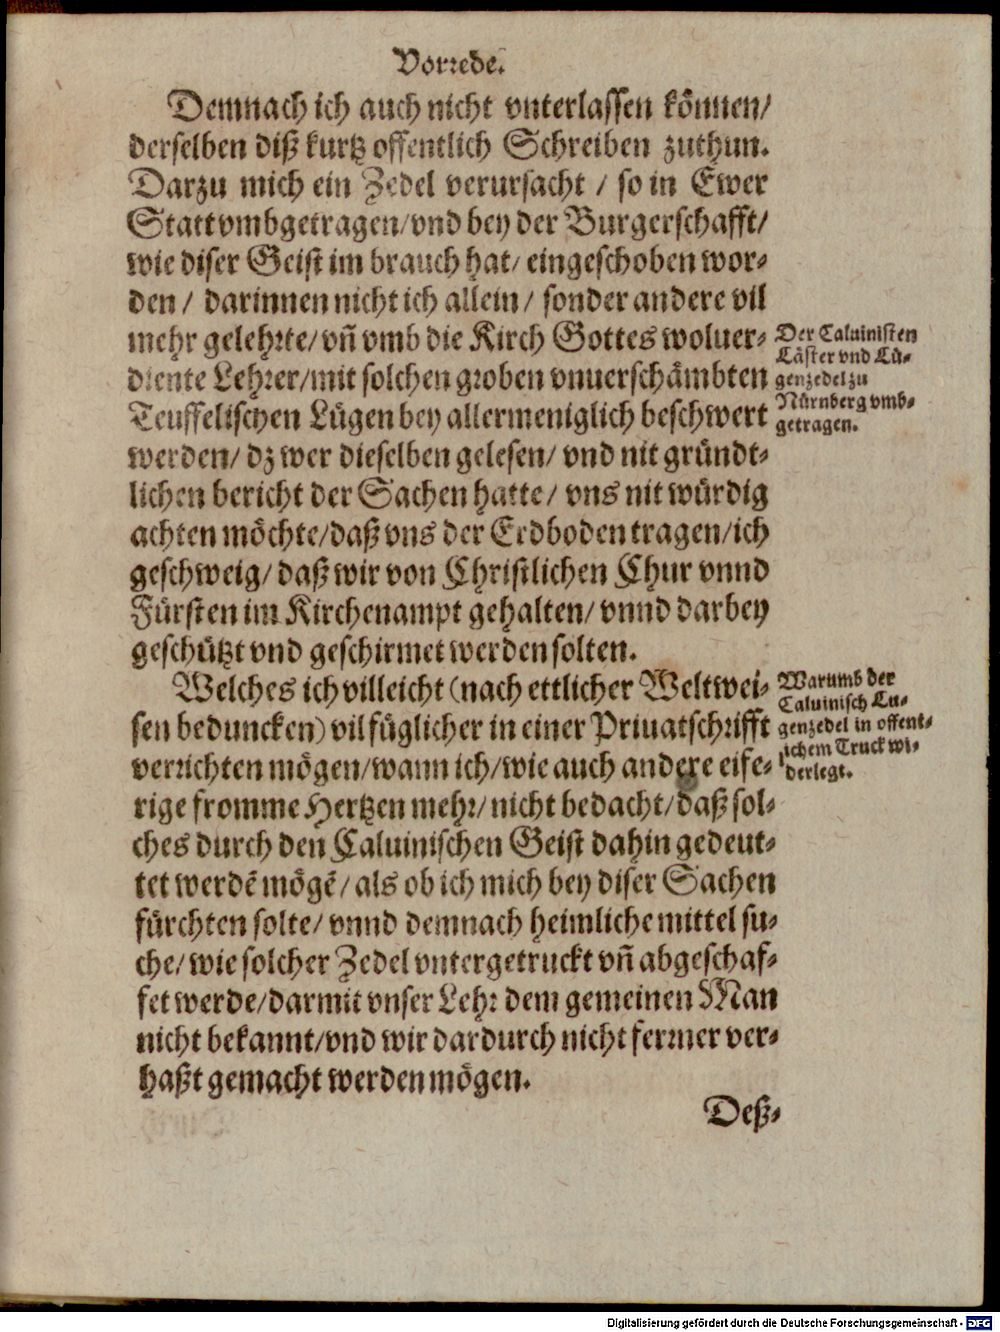 Vorrede.
Demnach ich auch nicht vnterlassen können/
derselben diß kurtz offentlich Schreiben zuthun.
Darzu mich ein Zedel verursacht / so in Ewer
Statt vmbgetragen/vnd bey der Burgerschafft/
wie diser Geist im brauch hat/ eingeschoben wor-
den / darinnen nicht ich allein / sonder andere vil
mehr gelehrte/vñ vmb die Kirch Gottes woluer-
diente Lehrer/mit solchen groben vnuerschämbten
Teuffelischen Lügen bey allermeniglich beschwert
werden/ dz wer dieselben gelesen/ vnd nit gründt-
lichen bericht der Sachen hatte/ vns nit würdig
achten möchte/daß vns der Erdboden tragen/ich
geschweig/ daß wir von Christlichen Chur vnnd
Fürsten im Kirchenampt gehalten/ vnnd darbey
geschützt vnd geschirmet werden solten.
Der Caluinisten
Läster vnd Lü-
genzedel zu
Nürnberg vmb-
getragen.
Welches ich villeicht (nach ettlicher Weltwei-
sen beduncken) vil füglicher in einer Priuatschrifft
verrichten mögen/wann ich/wie auch andere eife-
rige fromme Hertzen mehr/ nicht bedacht/daß sol-
ches durch den Caluinischen Geist dahin gedeut-
tet werdẽ mögẽ/ als ob ich mich bey diser Sachen
fürchten solte/ vnnd demnach heimliche mittel su-
che/ wie solcher Zedel vntergetruckt vñ abgeschaf-
fet werde/darmit vnser Lehr dem gemeinen Man
nicht bekannt/vnd wir dardurch nicht ferrner ver-
haßt gemacht werden mögen.
Warumb der
Caluinisch Lu-
genzedel in offent-
ichem Truck wi-
derlegt.
Deß-
Digitalisierung gefördert durch die Deutsche Forschungsgemeinschaft - DFG